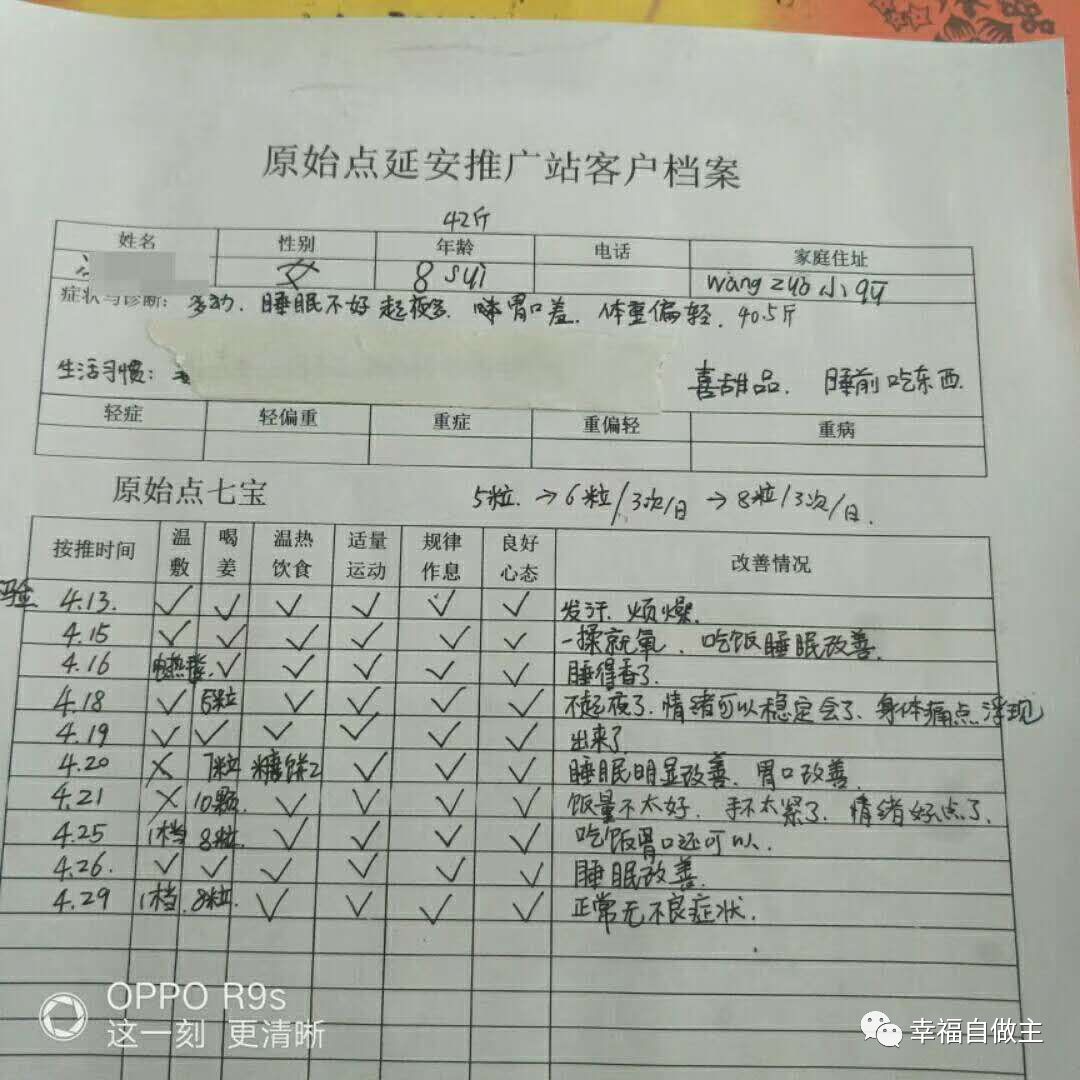 原始点延安推广站客户档案
42斤
姓名 性别 年龄 电话 家庭住址
女 8 suì wàng zuò 小 qū
症状与诊断：多动、睡眠不好 起夜多、 胃口差、体重偏轻、40.5斤
生活习惯： 喜甜品、 睡前吃东西
轻症 轻偏重 重症 重偏轻 重病
原始点七宝 5粒 → 6粒/3次/日 → 8粒/3次/日.
按推时间 温敷 喝姜 温热饮食 适量运动 规律作息 良好心态 改善情况
4.13. ✓ ✓ ✓ ✓ ✓ ✓ 发汗、烦燥.
4.15 ✓ ✓ ✓ ✓ ✓ ✓ 一揉就氧、吃饭睡眠改善.
4.16 ✓ ✓ ✓ ✓ ✓ 睡得香了.
4.18 ✓ 5粒 ✓ ✓ ✓ ✓ 不起夜了、情绪可以稳定会了、身体痛点浮现
4.19 ✓ ✓ ✓ ✓ ✓ ✓ 出来了
4.20 ✗ 7粒 糖饼2 ✓ ✓ ✓ 睡眠明显改善、胃口改善.
4.21 ✗ 10颗. ✓ ✓ ✓ ✓ 饭量不太好、手不太紧了、情绪好点了.
4.25 1档 8粒. ✓ ✓ ✓ ✓ 吃饭胃口还可以.
4.26. ✓ ✓ ✓ ✓ ✓ ✓ 睡眠改善.
4.29 1档. 8粒. ✓ ✓ ✓ ✓ 正常无不良症状.
OPPO R9s
这一刻 更清晰
幸福自做主